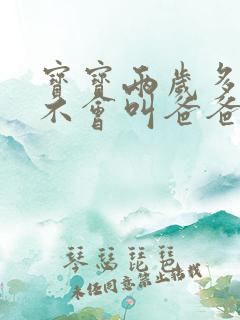 寶寶兩歲多
不會叫爸爸
琴瑟琵琶
未經同意禁止轉載